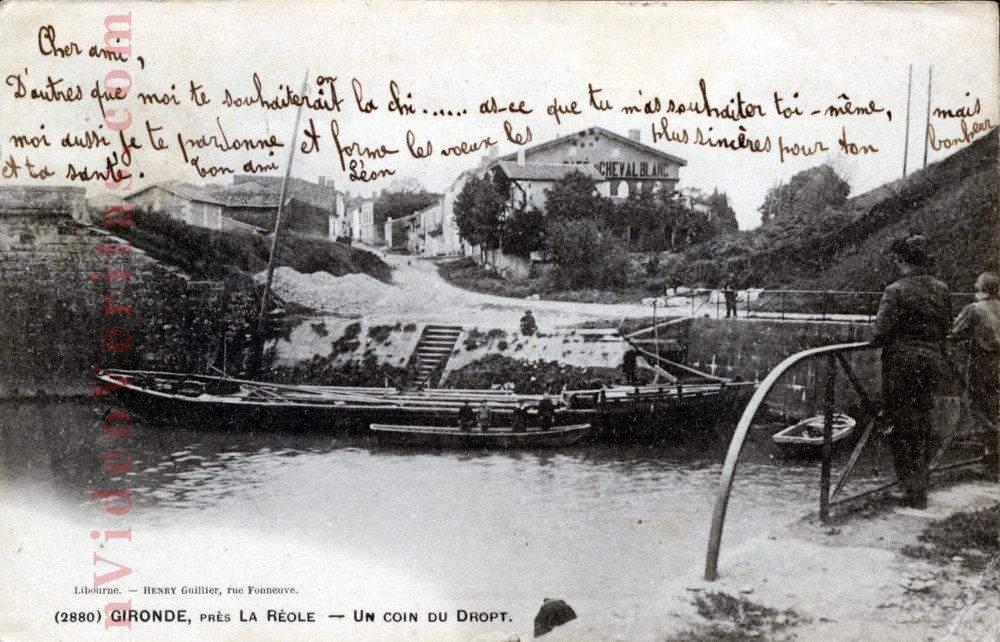 Cher ami,
D'autres que moi te souhaiteraient la chi...... as-ce que tu m'as souhaiter toi-même, mais
moi aussi je te pardonne et forme les vœux les plus sincères pour ton bonheur
et ta santé. ton ami Léon
CAFÉ DU CHEVAL BLANC
Libourne. — HENRY Guillier, rue Fonneuve.
(2880) GIRONDE, PRÈS LA RÉOLE — UN COIN DU DROPT.